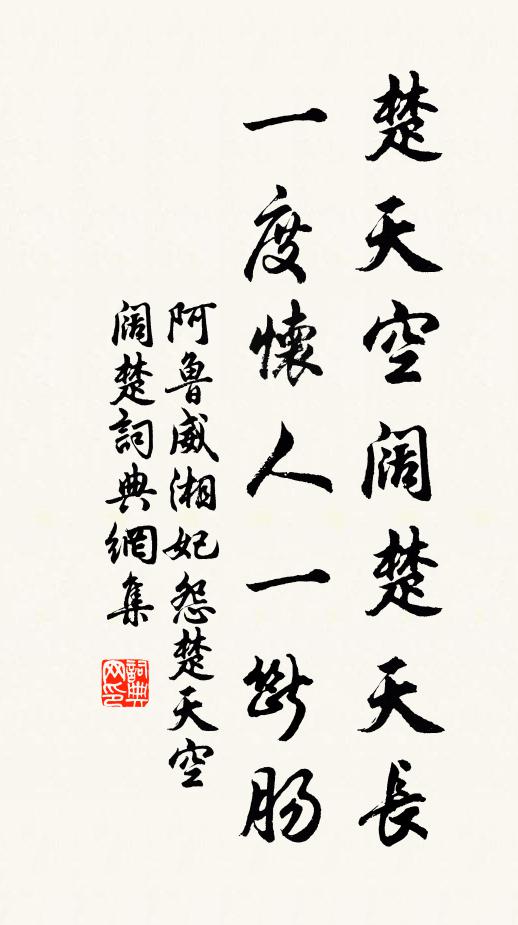 楚天空阔楚天長
一度懷人一斷肠
阿魯威湘妃怨楚天空
阔楚詞典網集
詞典网印